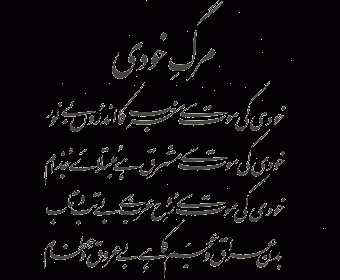 مرگِ خودی
خودی کی موت سے مغرب کا اندروں بے نور
خودی کی موت سے مشرق ہے مبتلائے جذام
خودی کی موت سے روح عرب ہے بے تب و تاب
بدن عراق و عجم کا ہے بے عروق و عظام